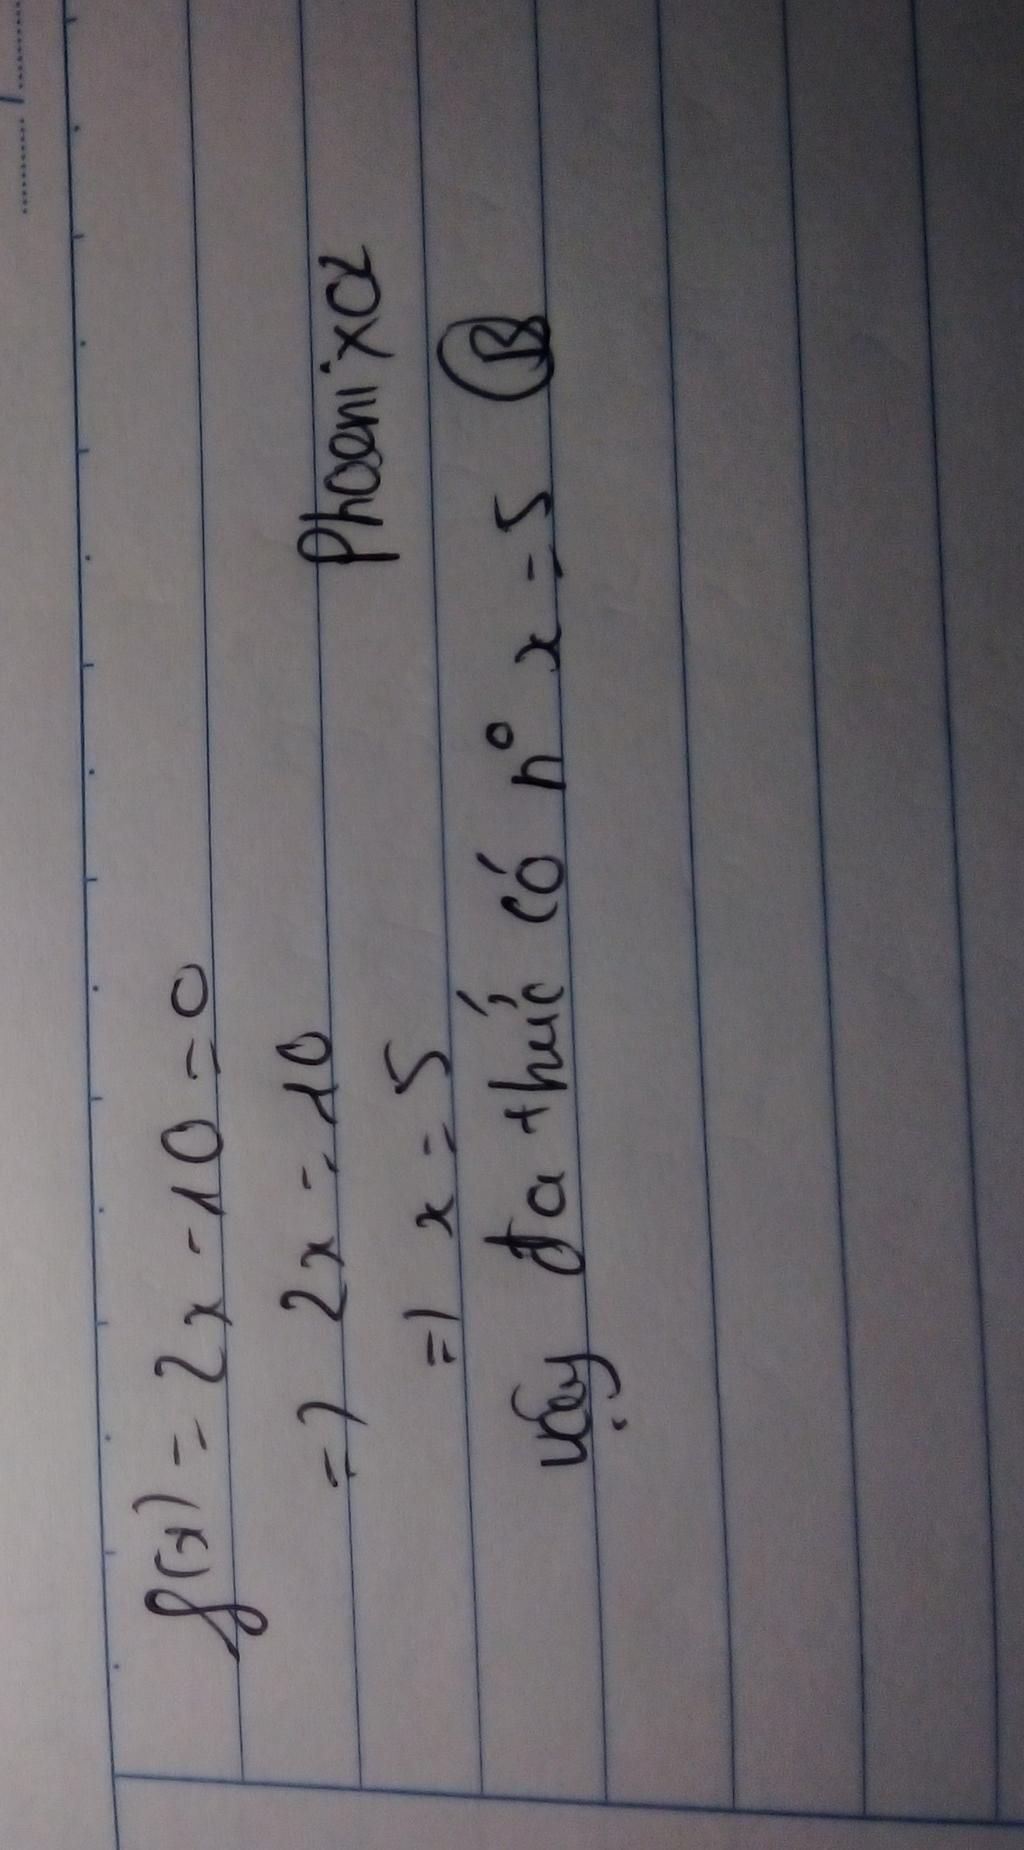 f(x) = 2x - 10 = 0
=> 2x = 10
Phoenixa
=> x = 5
vậy đa thức có n° x = 5 B